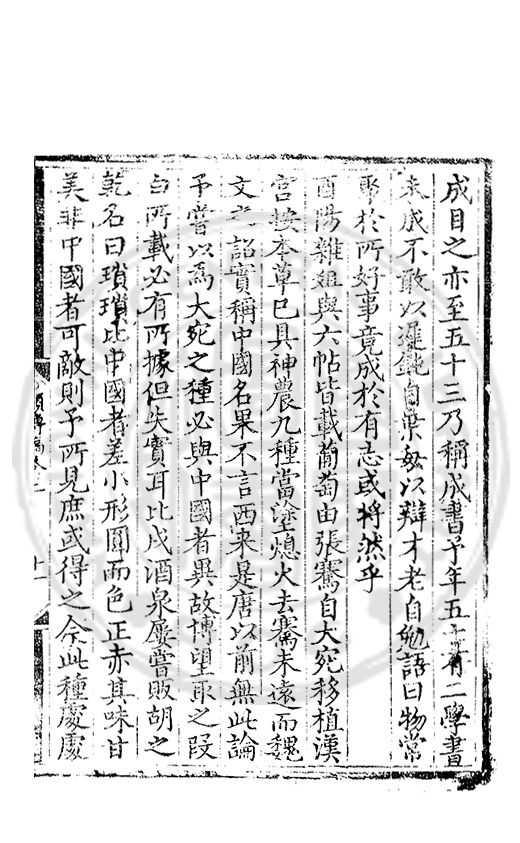 成目之亦至五十三乃稱成書予年五十有二學書
未成不敢以遲鈍自棄每以辯才老自勉語曰物常
聚於所好事竟成於有志或將然乎
酉陽雜俎與六帖皆載葡萄由張騫自大宛移植漢
宮按本草已具神農九種當塗熄火去騫未遠而魏
文之詔實稱中國名果不言西來是唐以前無此論
予嘗以為大宛之種必與中國者異故博望取之叚
白所載必有所據但失實耳比戍酒泉屢嘗販胡之
乾名曰瑣瑣比中國者差小形圓而色正赤其味甘
美非中國者可敵則予所見庶或得之今此種處處